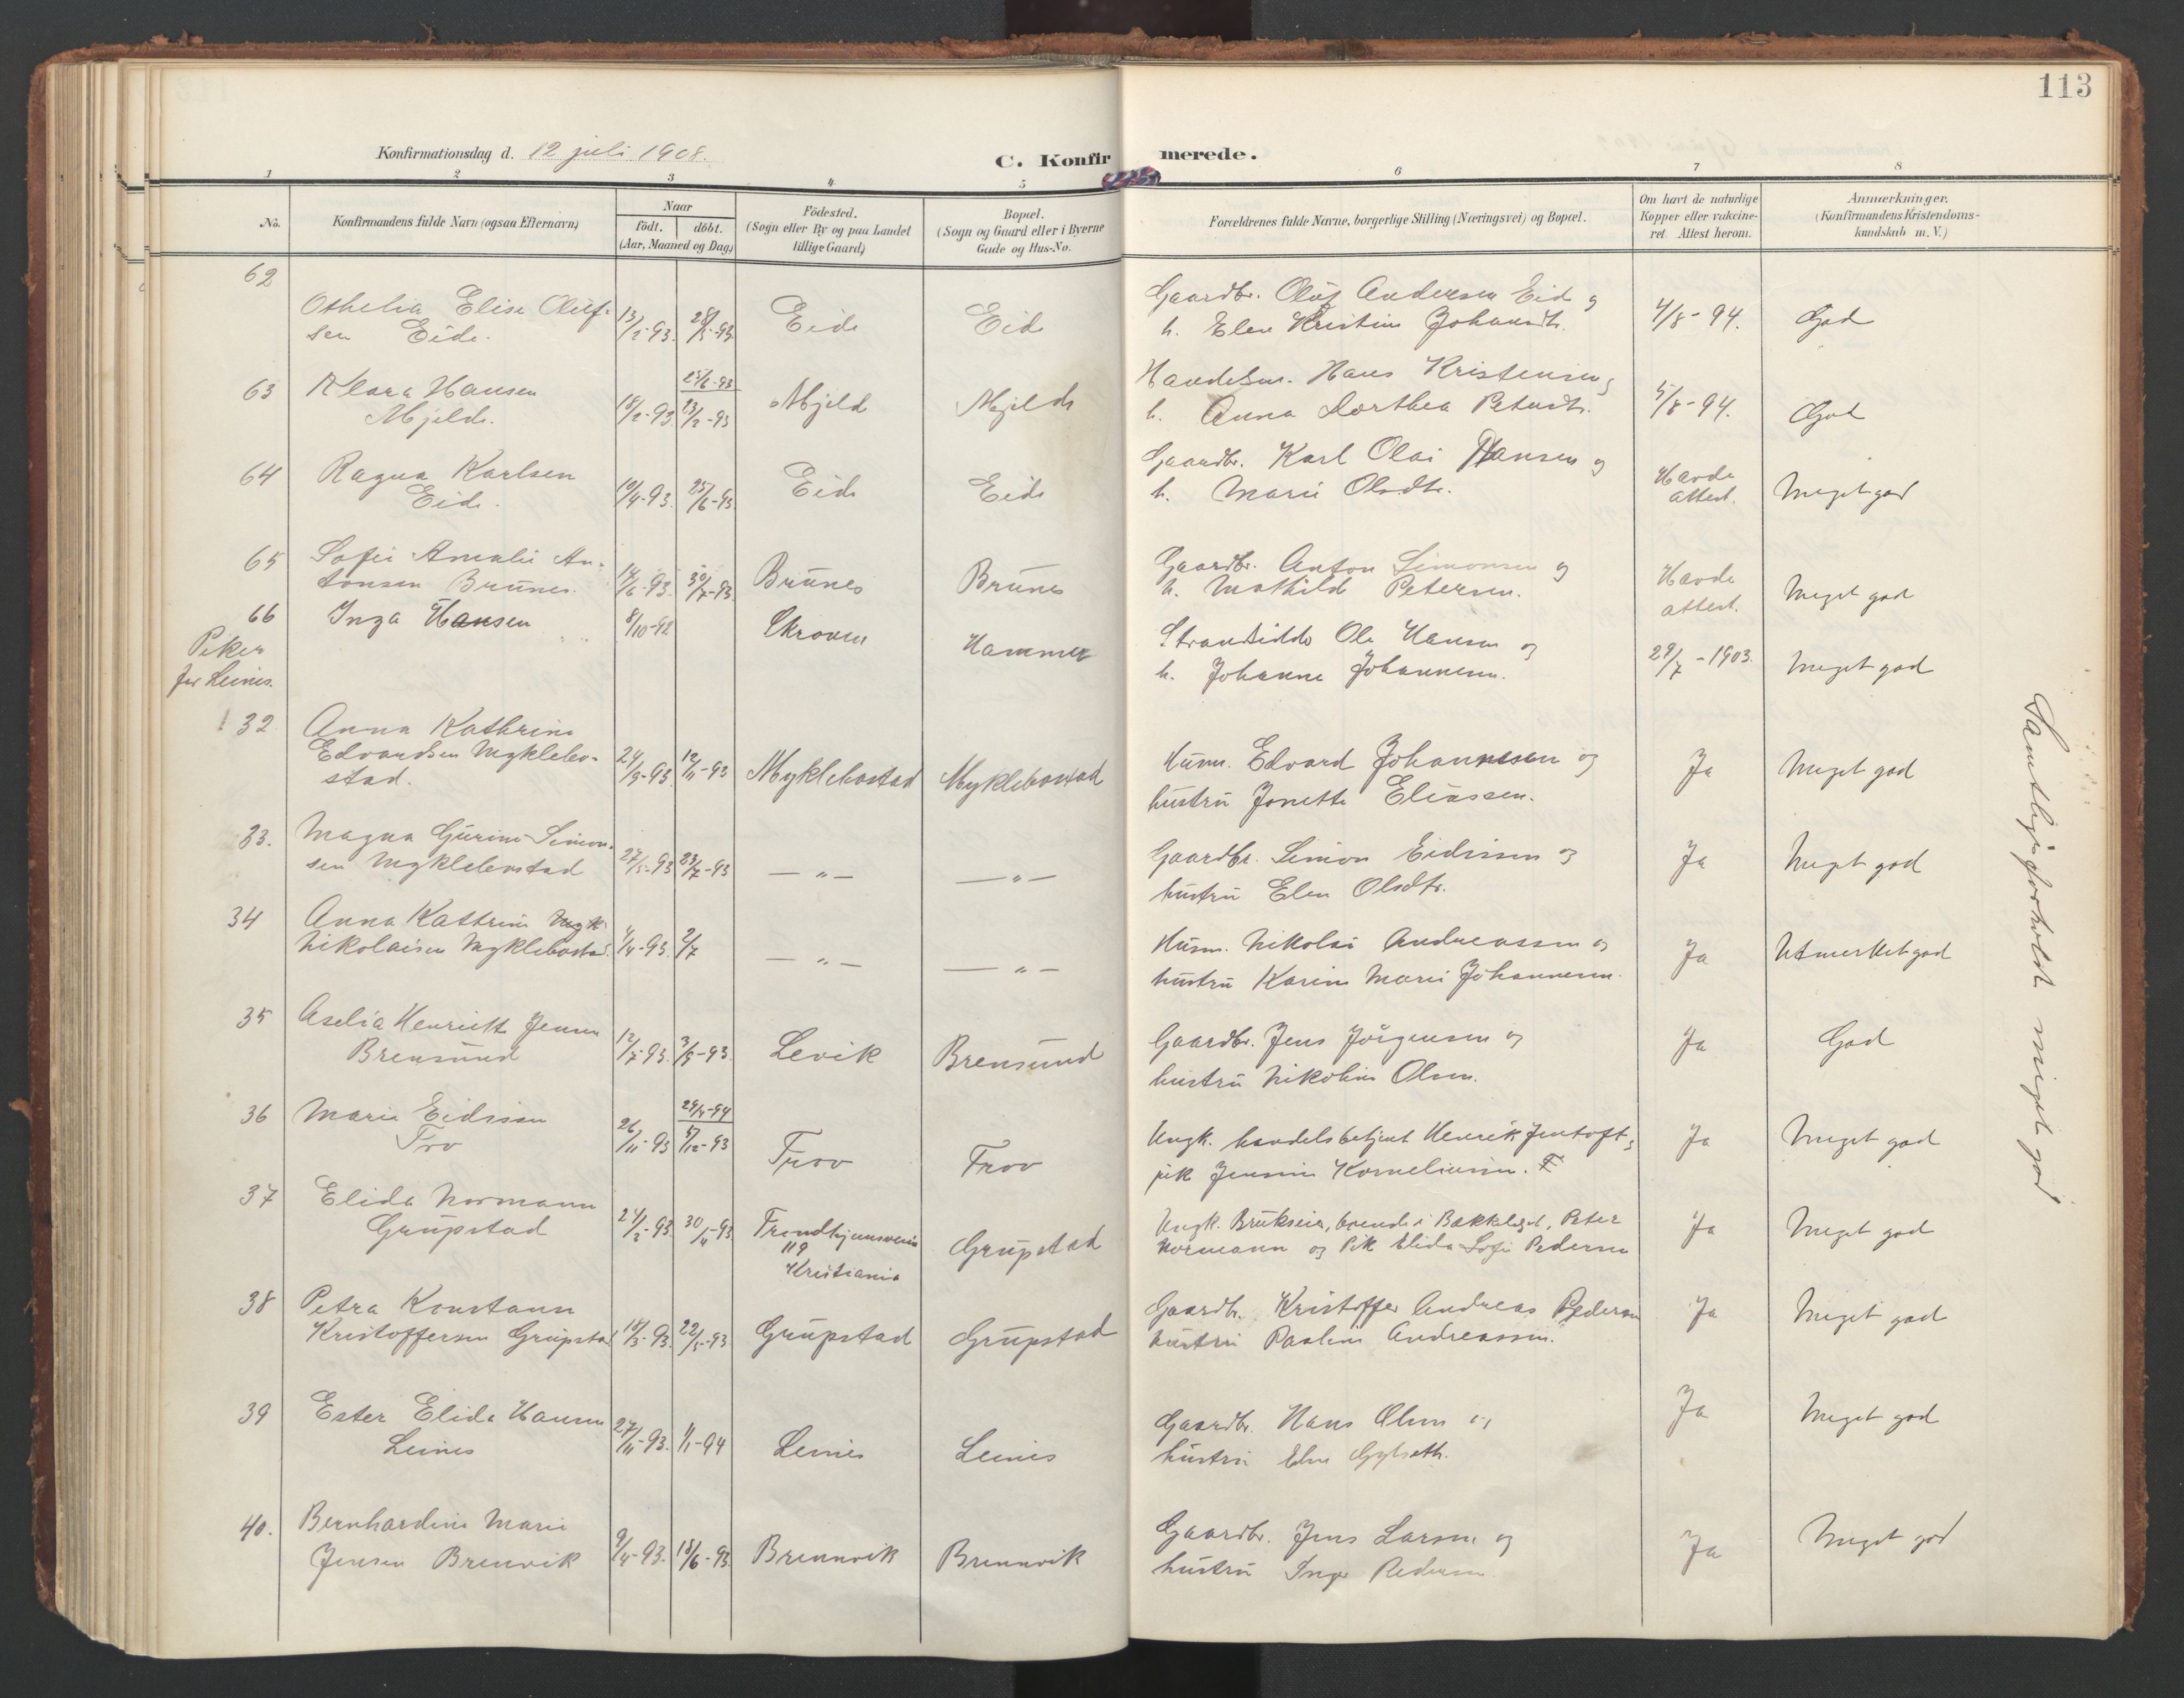 113
Konfirmationsdag d. 12 juli 1908.
C. Konfirmerede.
1 2 3 4 5 6 7 8
No.
Konfirmandens fulde Navn (ogsaa Efternavn)
Naar
født. døbt.
(Aar, Maaned og Dag)
Fødested.
(Sogn eller By og paa Landet
tillige Gaard)
Bopæl.
(Sogn og Gaard eller i Byerne
Gade og Hus-No.
Forældrenes fulde Navne, borgerlige Stilling (Næringsvei) og Bopæl.
Om havt de naturlige
Kopper eller vakcine-
ret. Attest herom.
Anmærkninger.
(Konfirmandens Kristendoms-
kundskab m. V.)
62
Othelia Elise Oluf-
sen Eide.
13/2-93. 28/5-93
Eide
Eid
Gaardbr. Oluf Andersen Eid og
h. Elen Kristine Johansdtr.
4/8-94.
God
63 Klara Hansen
Mjelde.
18/2-93.
25/6-93
23/2-93
Mjeld
Mjelde
Handelsm. Hans Kristensen og
h. Anna Dorthea Petersdtr.
5/8-94.
God
64 Ragna Karlsen
Eide.
10/4-93. 25/6-93.
Eide
Eide
Gaardbr. Karl Olai Hansen og
h. Marie Olsdtr.
Havde
attest.
Meget god
65 Sofie Amalie An-
tonsen Brunes.
14/6-93. 30/7-93.
Brunes
Brunes
Gaardbr. Anton Simonsen og
h. Mathilde Petersen.
Havde
attest.
Meget god
66 Inga Hansen
8/10-92
Skroven
Hammer
Strandsidder Ole Hansen og
h. Johanne Johannesen.
29/7-1903.
Meget god
Piker
for Leines.
32 Anna Kathrine
Edvardsen Myklebo-
stad.
24/9-93. 12/11-93
Myklebostad
Myklebostad
Husm. Edvard Johannesen og
hustru Jonette Eliassen.
Ja
Meget god
33. Magna Gurine Simon-
sen Myklebostad
27/5-93 23/7-93
— " —
— " —
Gaardbr. Simon Eidissen og
hustru Elen Olsdtr.
Ja
Meget god
34 Anna Katrine Myk
Nikolaisen Myklebostad.
4/4-93. 2/7
— " —
— " —
Husm. Nikolai Andreassen og
hustru Karine Marie Johannesen.
Ja
Utmerket god
35 Aselia Henriette Jensen
Brensund
12/7-93. 3/9-93
Levik
Brensund
Gaardbr. Jens Jörgensen og
hustru Nikoline Olsen.
Ja
God
36 Marie Eidissen
Trov
26/11-93
29/4-94
17/12-93
Trov
Trov
Ungk. handelsbetjent Henrik Jentoft og
pik Jensine Korneliussen.
Ja
Meget god
37 Elida Normann
Grupstad
24/2-93. 30/4-93
Trondhjemsveien
119
Kristiania
Grupstad
Ungk. Brukseier, boende i Bakkelaget, Peter
Normann og Pik Elida Sofie Pedersen
Ja
Meget god
38 Petra Konstanse
Kristoffersen Grupstad
18/3-93. 22/5-93
Grupstad
Grupstad
Gaardbr. Kristoffer Andreas Pedersen
hustru Pauline Andreassen.
Ja
Meget god
39 Ester Elida Hansen
Leines
27/11-93. 1/1-94
Leines
Leines
Gaardbr. Hans Olsen og
hustru Elen Gylseth.
Ja
Meget god
40. Bernhardine Marie
Jensen Brenvik
9/4-93. 18/6-93.
Brennvik
Brennvik
Gaardbr. Jens Larsen og
hustru Inger Pedersen
Ja
Meget god
Samtliges forhold meget god